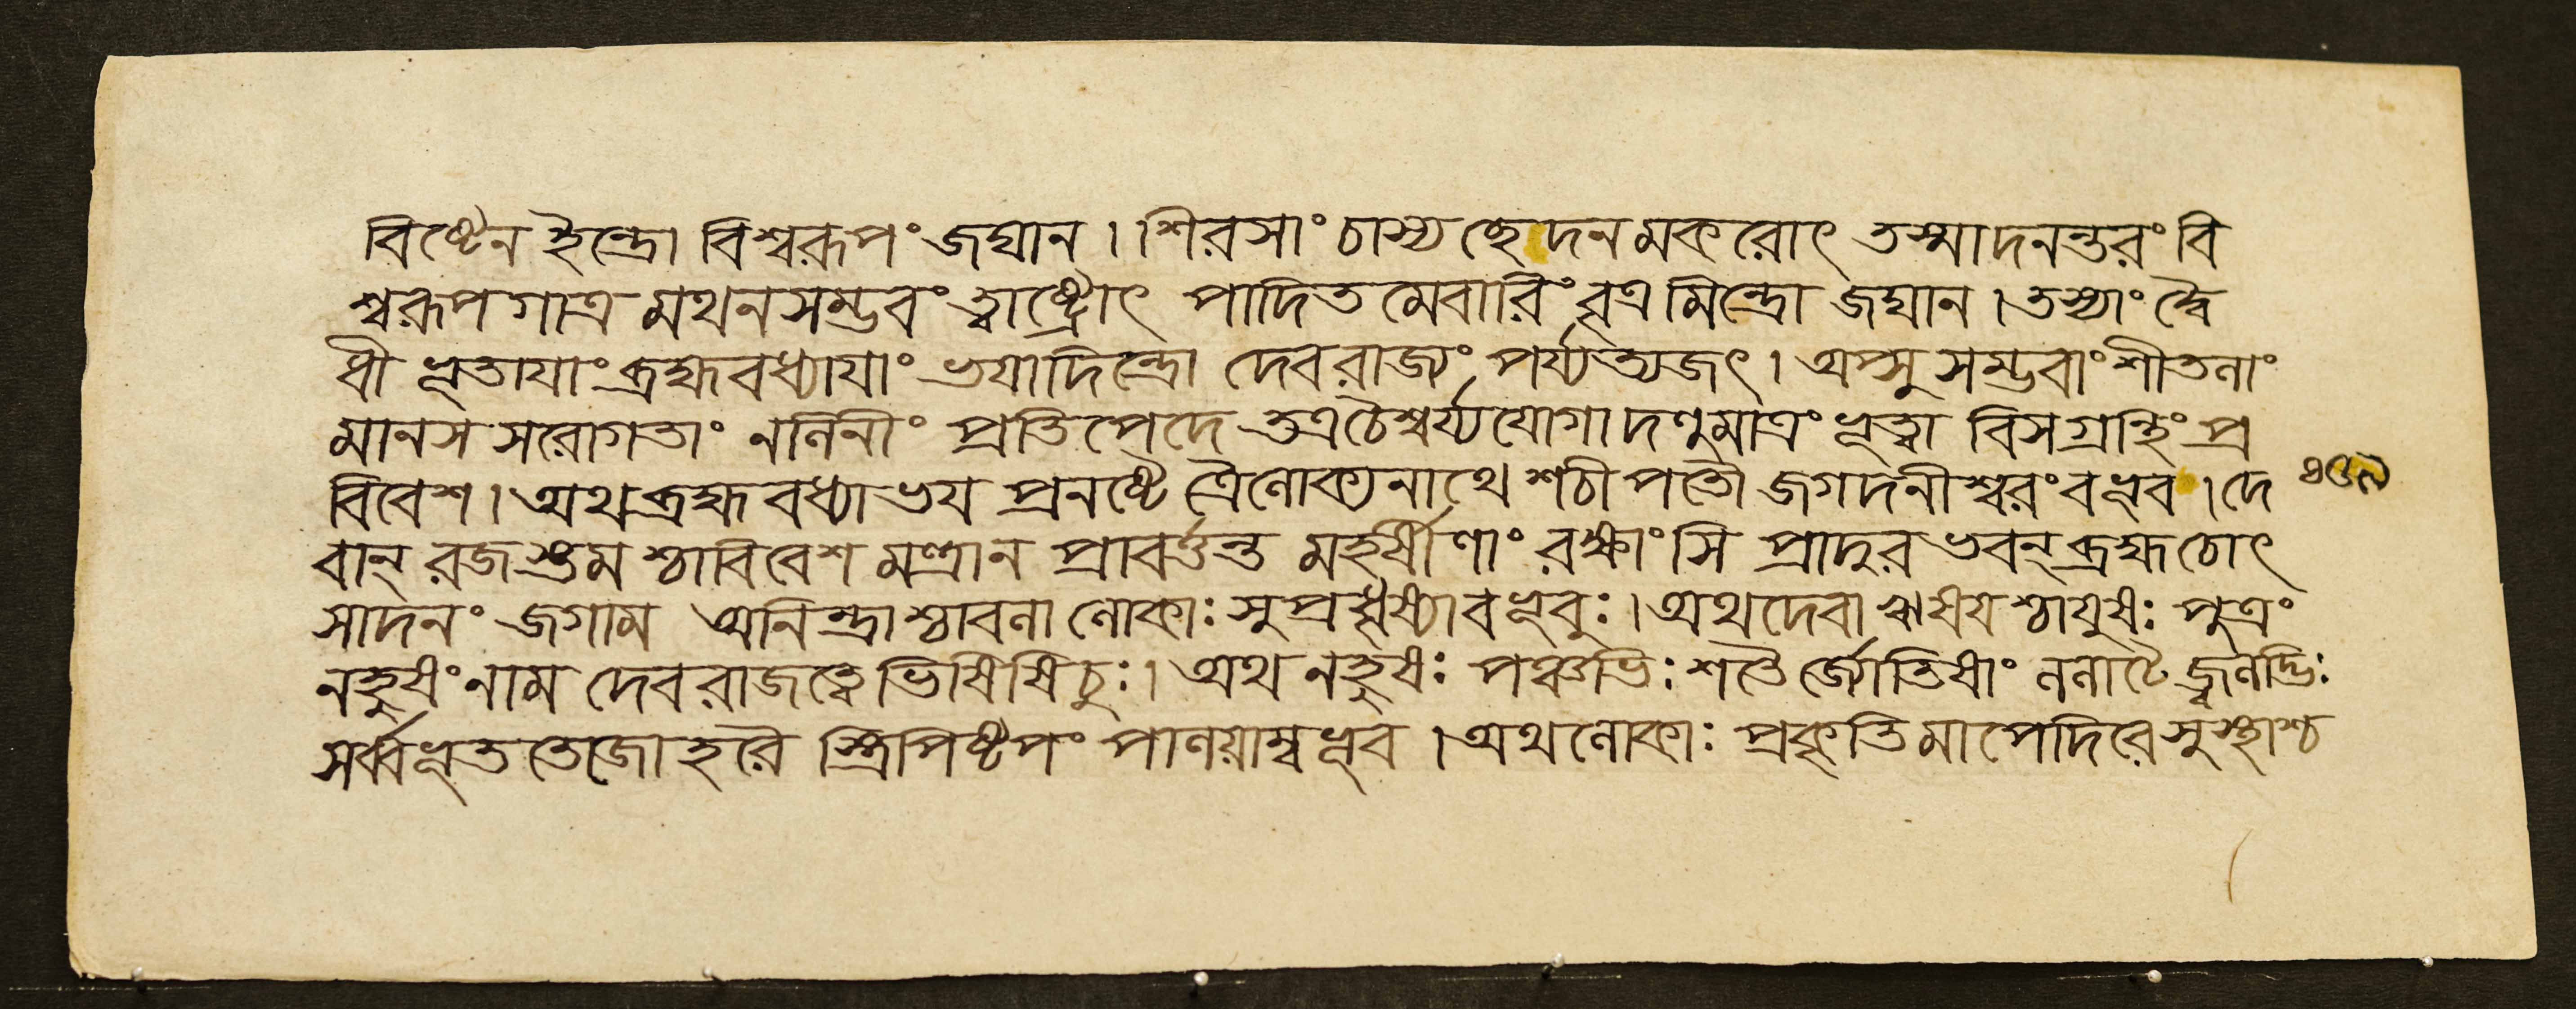 বিষ্টেন ইন্দ্রো বিশ্বরূপং জঘান। শিরসাং চাস্য ছেদনমকরোৎ তস্মাদনন্তরং বি
শ্বরূপগাত্র মথনসম্ভবং ত্বাষ্ট্রোৎ পাদিতমেবারিং বৃত্রমিন্দ্রো জঘান। তস্যাং দ্বৈ
ধী ভূতাযাং ব্রহ্মবধ্যাযাং ভযাদিন্দ্রো দেবরাজ্যং পর্য্যত্যজৎ। অপ্সু সম্ভবাং শীতলাং
মানস সরোগতাং নলিনীং প্রতিপেদে তত্রচৈশ্বর্য্যযোগাদণুমাত্রং ভূত্বা বিসগ্রন্থিং প্র
বিবেশ। অথ ব্রহ্মবধ্যাভয প্রনষ্টে ত্রৈলোক্যনাথে শচীপতৌ জগদনীশ্বরং বভূব। দে
বান্ রজস্তমশ্চাবিবেশ মন্ত্রান প্রাবর্ত্তন্ত মহর্ষীণাং রক্ষাংসি প্রাদুরভবন্ ব্রহ্মচোৎ
সাদনং জগাম অনিন্দ্রাশ্চাবলা লোকাঃ সুপ্রধৃষ্যাবভূবুঃ। অথদেবা ঋষযশ্চাযুষঃ পুত্রং
নহুষং নাম দেবরাজত্বেভিষিষিচুঃ। অথ নহুষঃ পঞ্চভিঃ শতৈর্জ্যোতিষাং ললাটেজ্বলদ্ভিঃ
সর্ব্বভূত তেজোহরৈ স্ত্রিপিষ্টপং পালয়াম্বভূব। অথলোকাঃ প্রকৃতিমাপেদিরে সুস্থাশ্চ